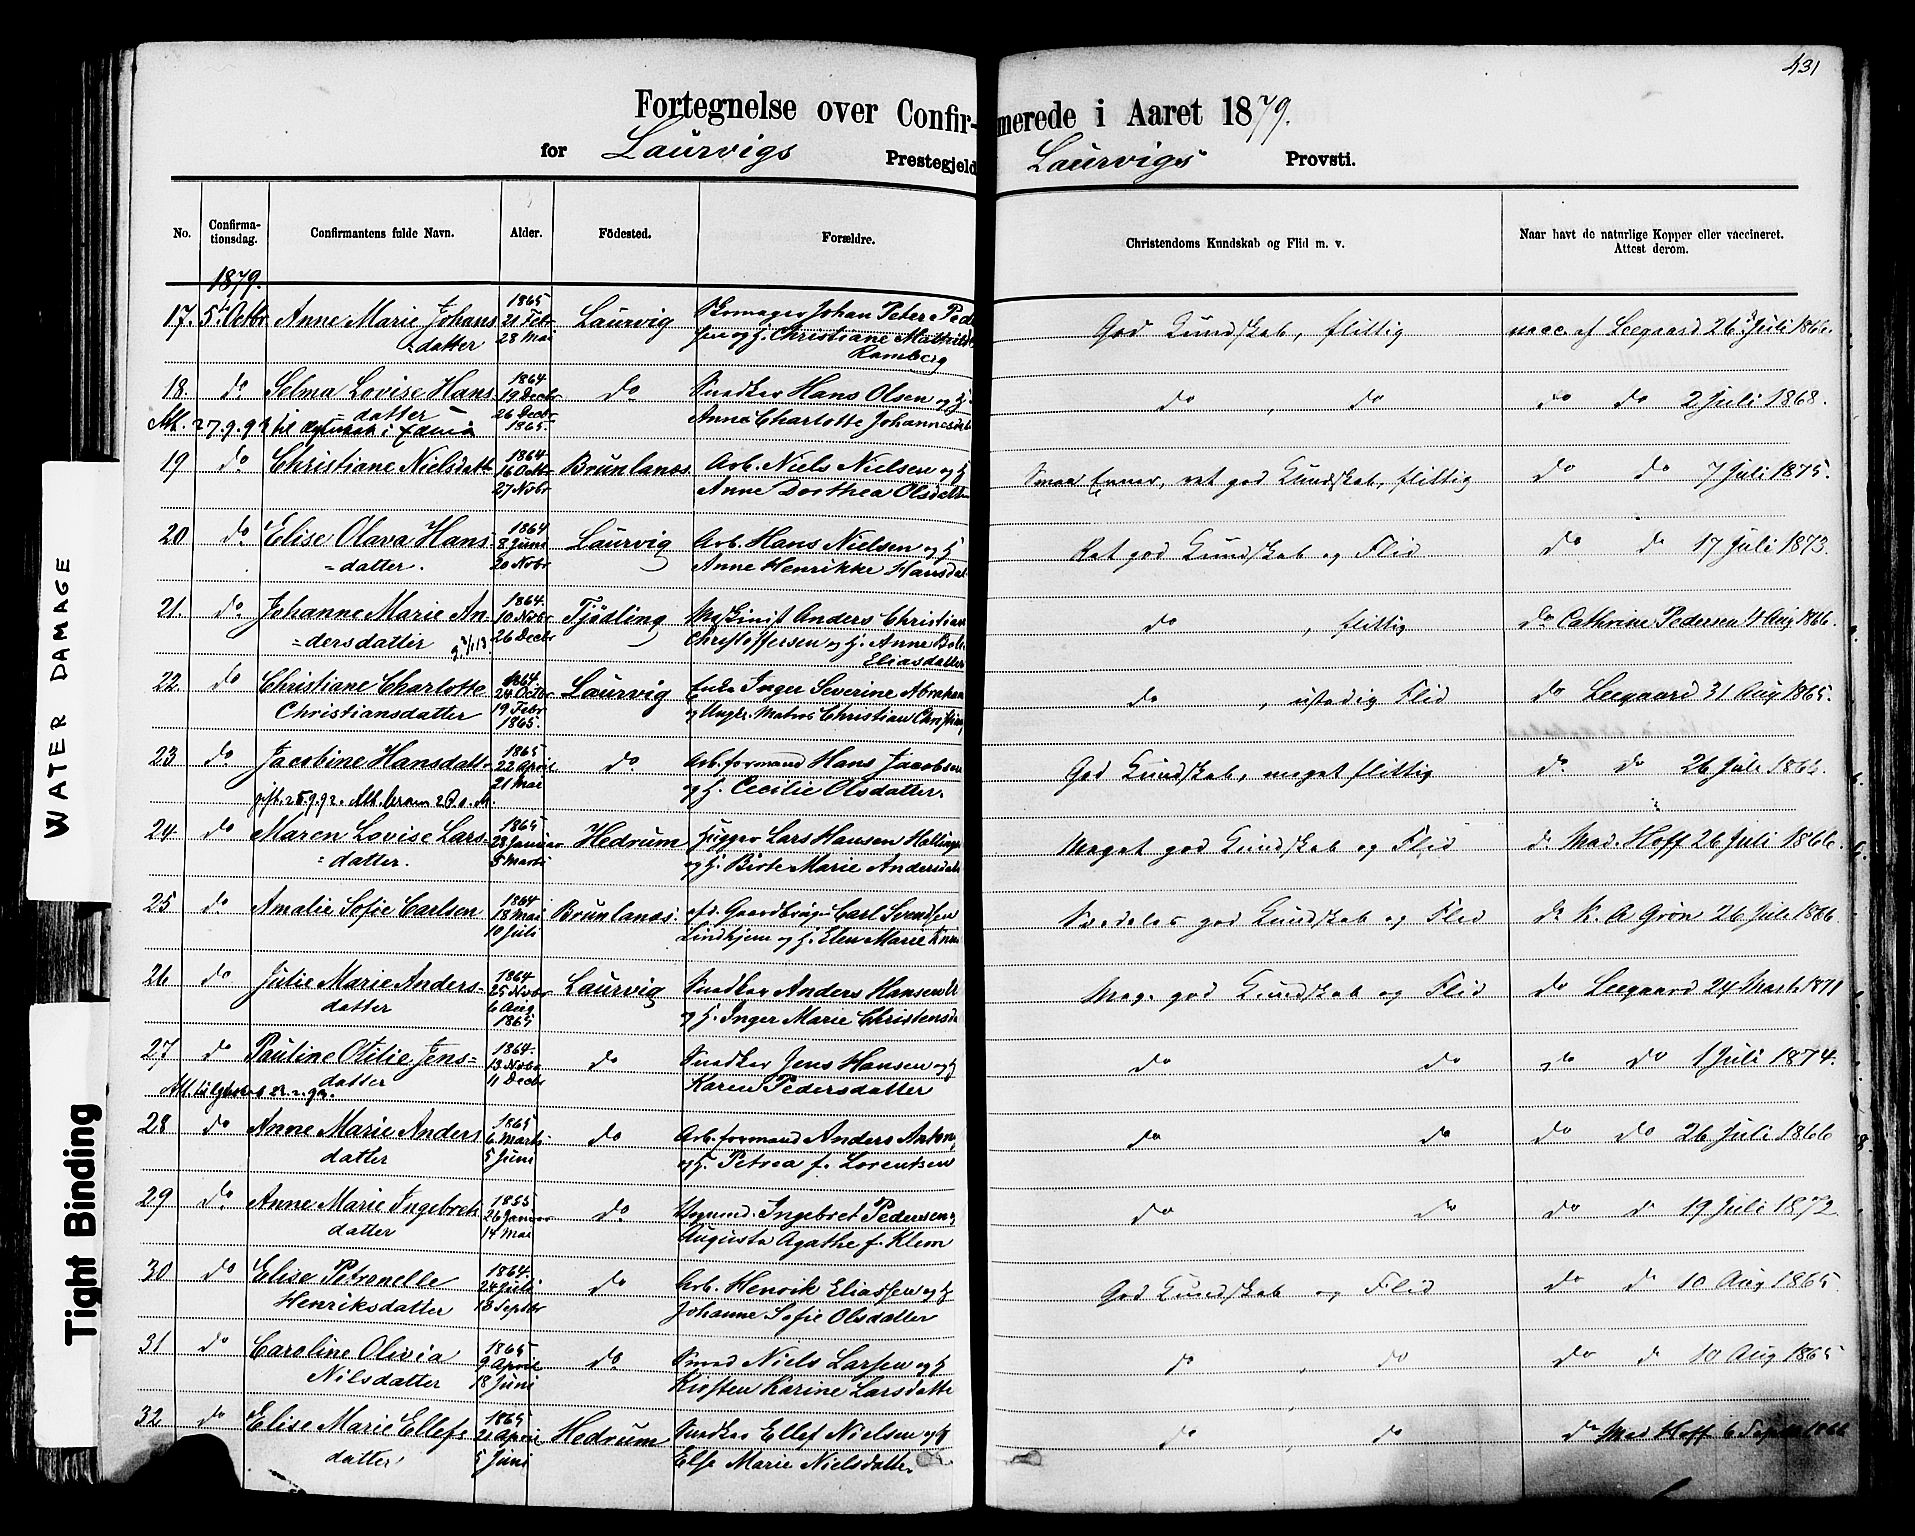 431
Fortegnelse over Confirmerede i Aaret 1879.
for Laurvigs Prestegjeld Laurvigs Provsti.
No. Confirmationsdag. Confirmantens fulde Navn. Alder. Födested. Forældre. Christendoms Kundskab og Flid m. v. Naar havt de naturlige Kopper eller vaccineret. Attest derom.
1879.
17. 5t Octbr Anne Marie Johans=datter 1865 21 Febr 28 Mai Laurvig Skomager Johan Peter Pedersen og H. Christiane Mathilde Ramberg God Kundskab, flittig vacc af Leegaard 26 Juli 1866.
18. do Selma Lovise Hans=datter 1864 19 Decbr 26 Decbr 1865. do Snedker Hans Olsen og H. Anne Charlotte Johannesdat do, do do do 2 Juli 1868.
Att. 27.9.92 til
19 do Christiane Nielsdatt 1864 16 Octbr 27 Novbr Brunlanæs Arb. Niels Nielsen og H Anne Dorthea Olsdatter Smaa Evner, ret god Kundskab, flittig do do 7 Juli 1875.
20 do Elise Olava Hans=datter. 1864 8 Juni 20 Novbr Laurvig Arb. Hans Nielsen og H Anne Henrikke Hansdat Ret god Kundskab og Flid do do 17 Juli 1873.
21. do Johanne Marie An=dersdatter 1864. 10 Novbr 26 Decbr Tjödling Maskinist Anders Christian Christoffersen og H. Anne Eliasdatter do, flittig do Cathrine Pedersen 4 Aug 1866.
22. do Christiane Charlotte Christiansdatter 1864. 24 Octbr 19 Febr 1865. Laurvig Enke Inger Severine Abraham og Ungk. Matros Christian do, ustadig Flid do Leegaard 31 Aug 1865.
23 do Jacobine Hansdatt 1865 22 April 21 Mai do Arb.formand Hans Jacobsen og H. Cecilie Olsdatter. God Kundskab, meget flittig do do 26 Juli 1866.
gift. 25.9.92. Att.
24. do Maren Lovise Lars=datter. 1865 28 Januar 5 Marts Hedrum Lars Hansen og H. Birte Marie Andersdatt Meget god Kundskab og Flid do Mad. Hoff 26 Juli 1866.
25 do Amalie Sofie Carlsen 1864 18 Mai 10 Juli Brunlanæs. afd. Gaardbruger Carl Svendsen Lindhjem og H. Elen Marie Særdeles god Kundskab og Flid do K. A Grön 26 Juli 1866
26 do Julie Marie Anders=datter 1864 25 Novbr 6 Aug 1865 Laurvig Snedker Anders Hansen og H. Inger Marie Christensd Meg. god Kundskab og Flid do Leegaard 24 Marts 1871
27 do Pauline Otilie Jens=datter 1864. 13 Novbr 11 Decbr do Snedker Jens Hansen og H Karen Pedersdatter do do do do 1 Juli 1874.
28 do Anne Marie Anders datter 1865 6 Marts 5 Juni do Arb.formand Anders Anton og H. Petrea f. Lorentsen do do do do 26 Juli 1866
29 do Anne Marie Ingebrets datter 1865 26 Januar 14 Mai do Ingebret Pedersen og Augusta Agathe f. Klem do do do do 19 Juli 1872
30 do Elise Petronelle Henriksdatter 1864. 24 Juli 18 Septbr do Arb. Henrik Eliassen og H Johanne Sofie Olsdatter God Kundskab og Flid do do 10 Aug 1865
31 do Caroline Olivia Nilsdatter 1865 9 April 18 Juni do Smed Niels Larsen og H Kirsten Karine Larsdatte do, do do do 10 Aug 1865
32 do Elise Marie Ellefs datter 1865 21 April 5 Juni Hedrum Snedker Ellef Nielsen og H Else Marie Nielsdatte. do, do do Mad Hoff 6 Septbr 1866
WATER DAMAGE
Tight Binding